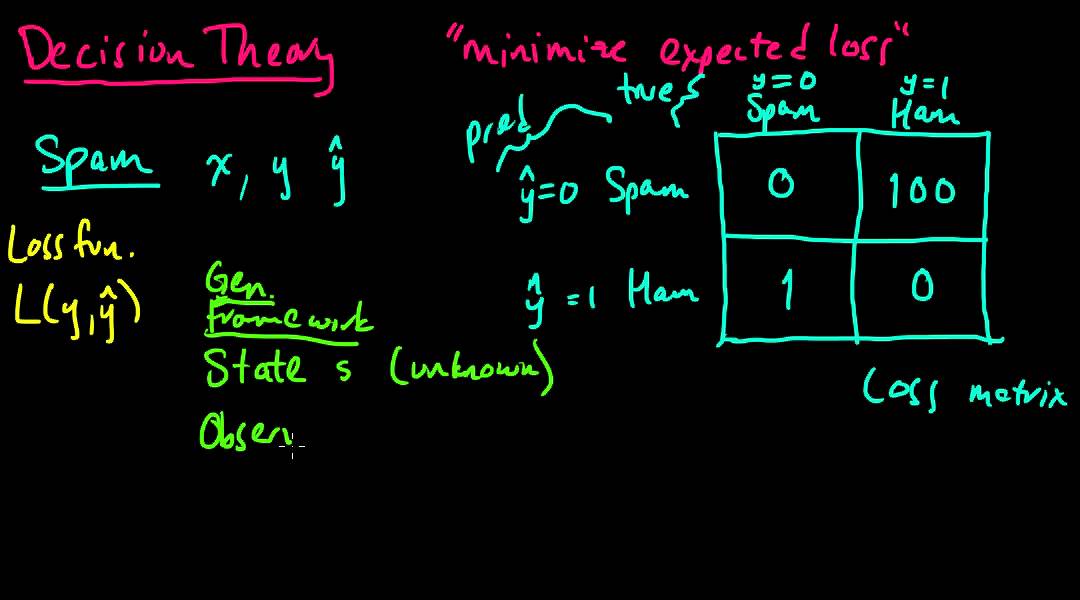 Decision Theory
"minimize expected loss"
pred
true {
y=0
Spam
y=1
Ham
Spam x, y ŷ
ŷ=0 Spam 0 100
ŷ=1 Ham 1 0
Loss matrix
Loss fun.
L(y,ŷ)
Gen.
Framework
State s (unknown)
Observ